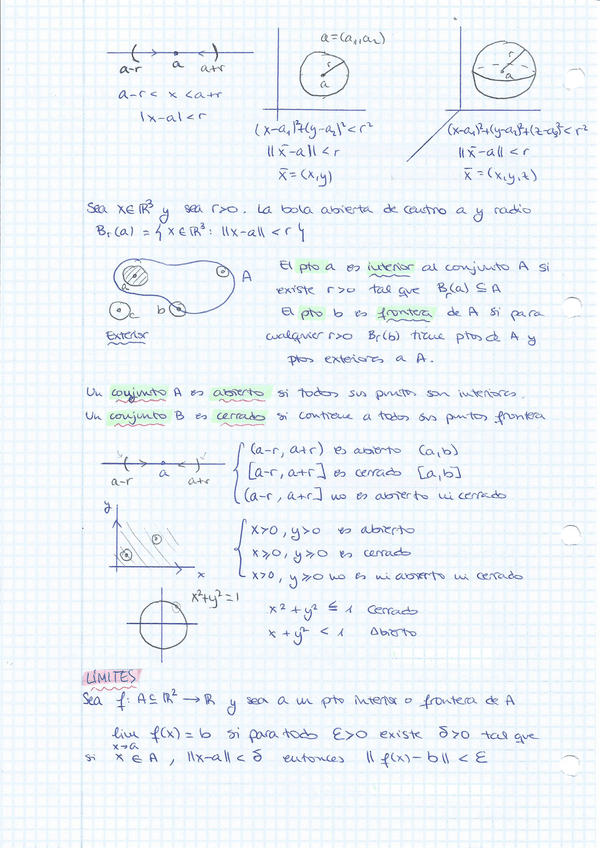 a = (a₁, a₂)
a-r a a+r
r
a
r
a
a-r < x < a+r
|x-a| < r
(x-a₁)²+(y-a₂)² < r²
||x̄-a|| < r
x̄ = (x,y)
(x-a₁)²+(y-a₂)²+(z-a₃)² < r²
||x̄-a|| < r
x̄ = (x,y,z)
Sea x ∈ ℝ³ y sea r>0. La bola abierta de centro a y radio
Bᵣ(a) = { x ∈ ℝ³ : ||x-a|| < r }
a A
c b
Exterior
El pto a es interior al conjunto A si
existe r>0 tal que Bᵣ(a) ⊆ A
El pto b es frontera de A si para
cualquier r>0 Bᵣ(b) tiene ptos de A y
ptos exteriores a A.
Un conjunto A es abierto si todos sus puntos son interiores.
Un conjunto B es cerrado si contiene a todos sus puntos frontera
a-r a a+r
(a-r, a+r) es abierto (a,b)
[a-r, a+r] es cerrado [a,b]
(a-r, a+r] no es abierto ni cerrado
y
x
x>0, y>0 es abierto
x≥0, y≥0 es cerrado
x>0, y≥0 no es ni abierto ni cerrado
x²+y²=1
x² + y² ≤ 1 Cerrado
x + y² < 1 Abierto
LÍMITES
Sea f: A ⊆ ℝ² → ℝ y sea a un pto interior o frontera de A
lim f(x) = b si para todo ε>0 existe δ>0 tal que
x→a
si x ∈ A, ||x-a|| < δ entonces || f(x)-b || < ε